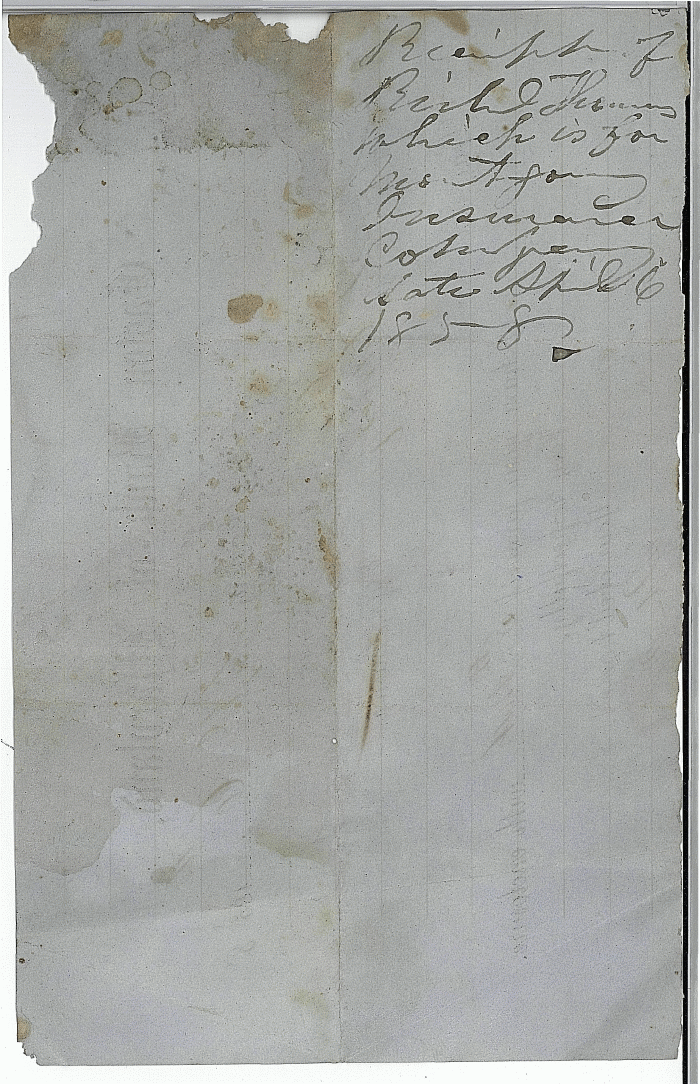 Receipt of
Richd Thomas
which is for
Insurance
Company
date April 6
1858